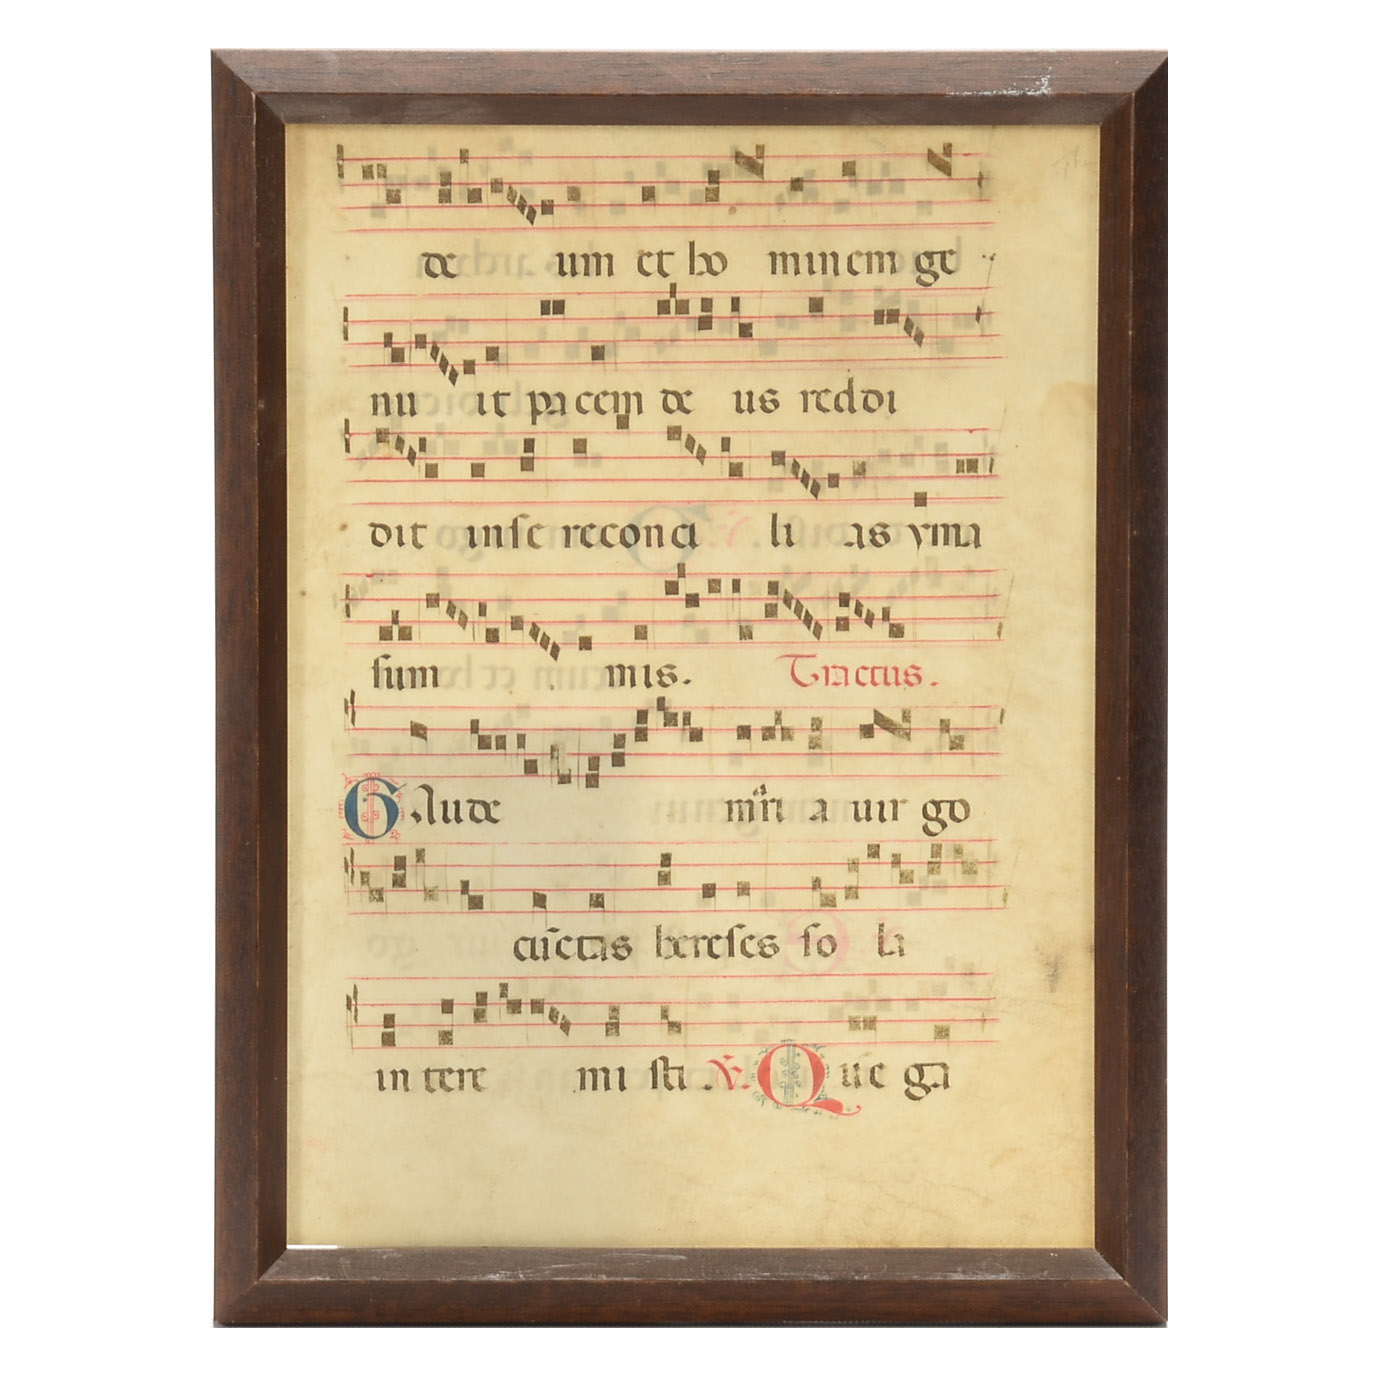 de um et ho minem ge
nu it pacem de us reddi
dit inse reconci li as yma
sum mis. Tractus.
Gaude Mr̃ia uir go
cũctas hereses so la
in tere mi sti. ℣. Que ga